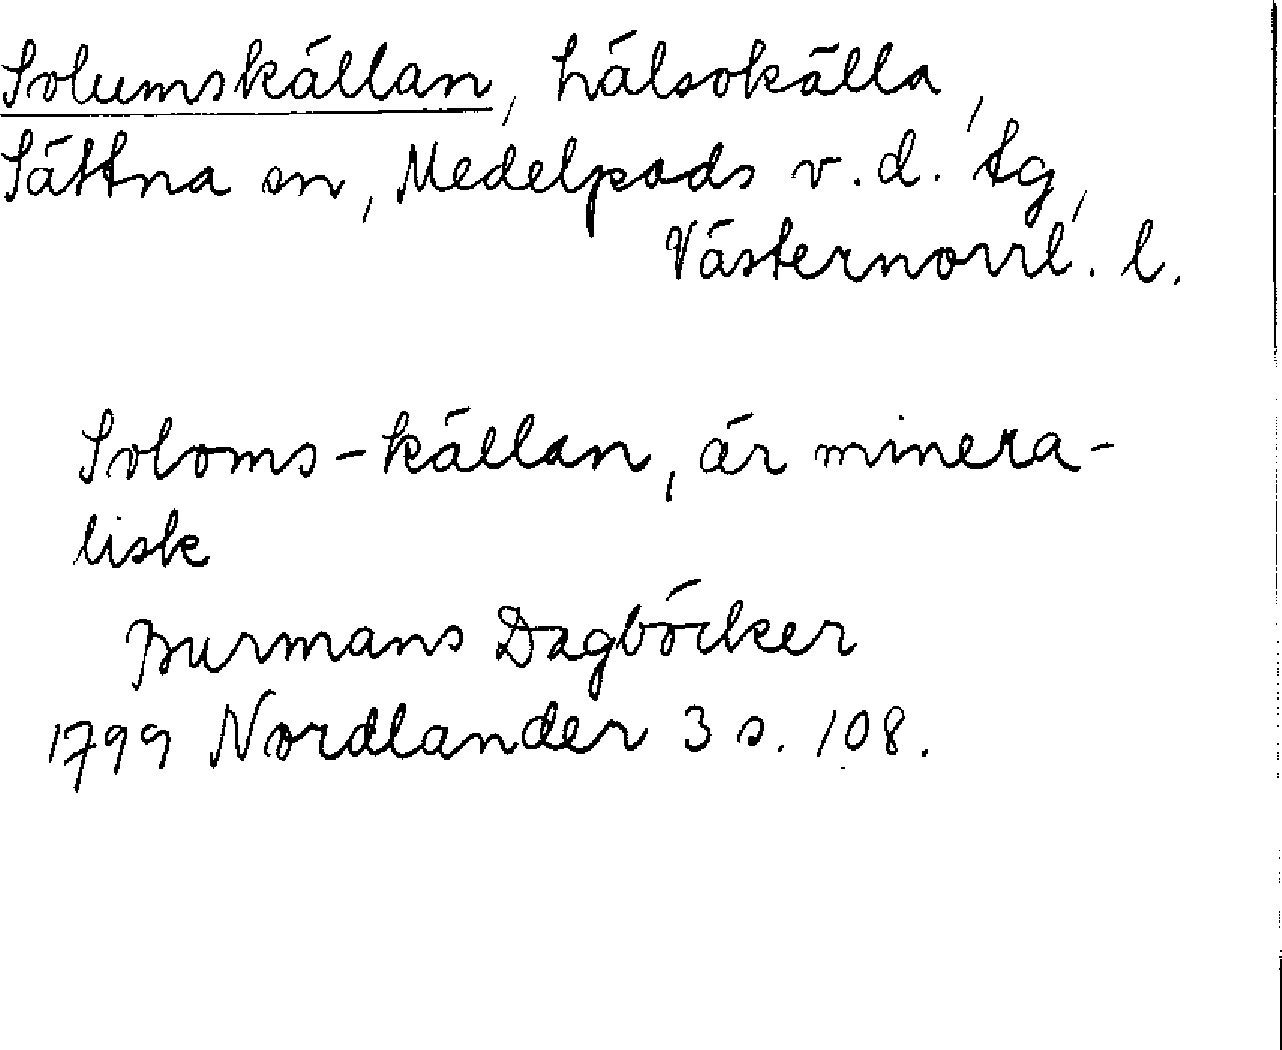 Solumskällan, hälsokälla,
Sättna sn, Medelpads v. d. tg,
Västernorrl. l.
Soloms-källan, är minera-
lisk
Burmans Dagböcker
1799 Nordlander 3 s. 108.